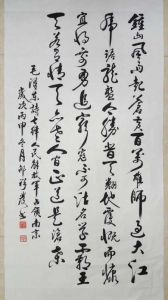 鐘山風雨起蒼黃百萬雄師過大江
虎踞龍盤今勝昔天翻地覆慨而慷
宜將剩勇追窮寇不可沽名學霸王
天若有情天亦老人間正道是滄桑
毛澤東詩七律人民解放軍占領南京
歲次丙申冬月邵書